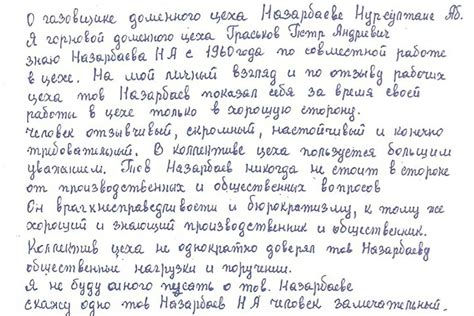 О газовщике доменного цеха Назарбаеве Нурсултане Аб.
Я горновой доменного цеха Граськов Петр Андриевич
знаю Назарбаева Н А с 1960 года по совместной работе
в цехе. На мой личный взгляд и по отзыву рабочих
цеха тов Назарбаев показал себя за время своей
работы в цехе только в хорошую сторону.
Человек отзывчивый, скромный, настойчивый и конечно
требовательный. В коллективе цеха пользуется большим
уважением. Тов Назарбаев никогда не стоит в стороне
от производственных и общественных вопросов
Он враг несправедливости и бюрократизму, к тому же
хороший и знающий производственник и общественник.
Коллектив цеха не однократно доверял тов Назарбаеву
общественные нагрузки и поручении.
Я не буду много писать о тов. Назарбаеве
скажу одно тов Назарбаев Н А человек замечательный.